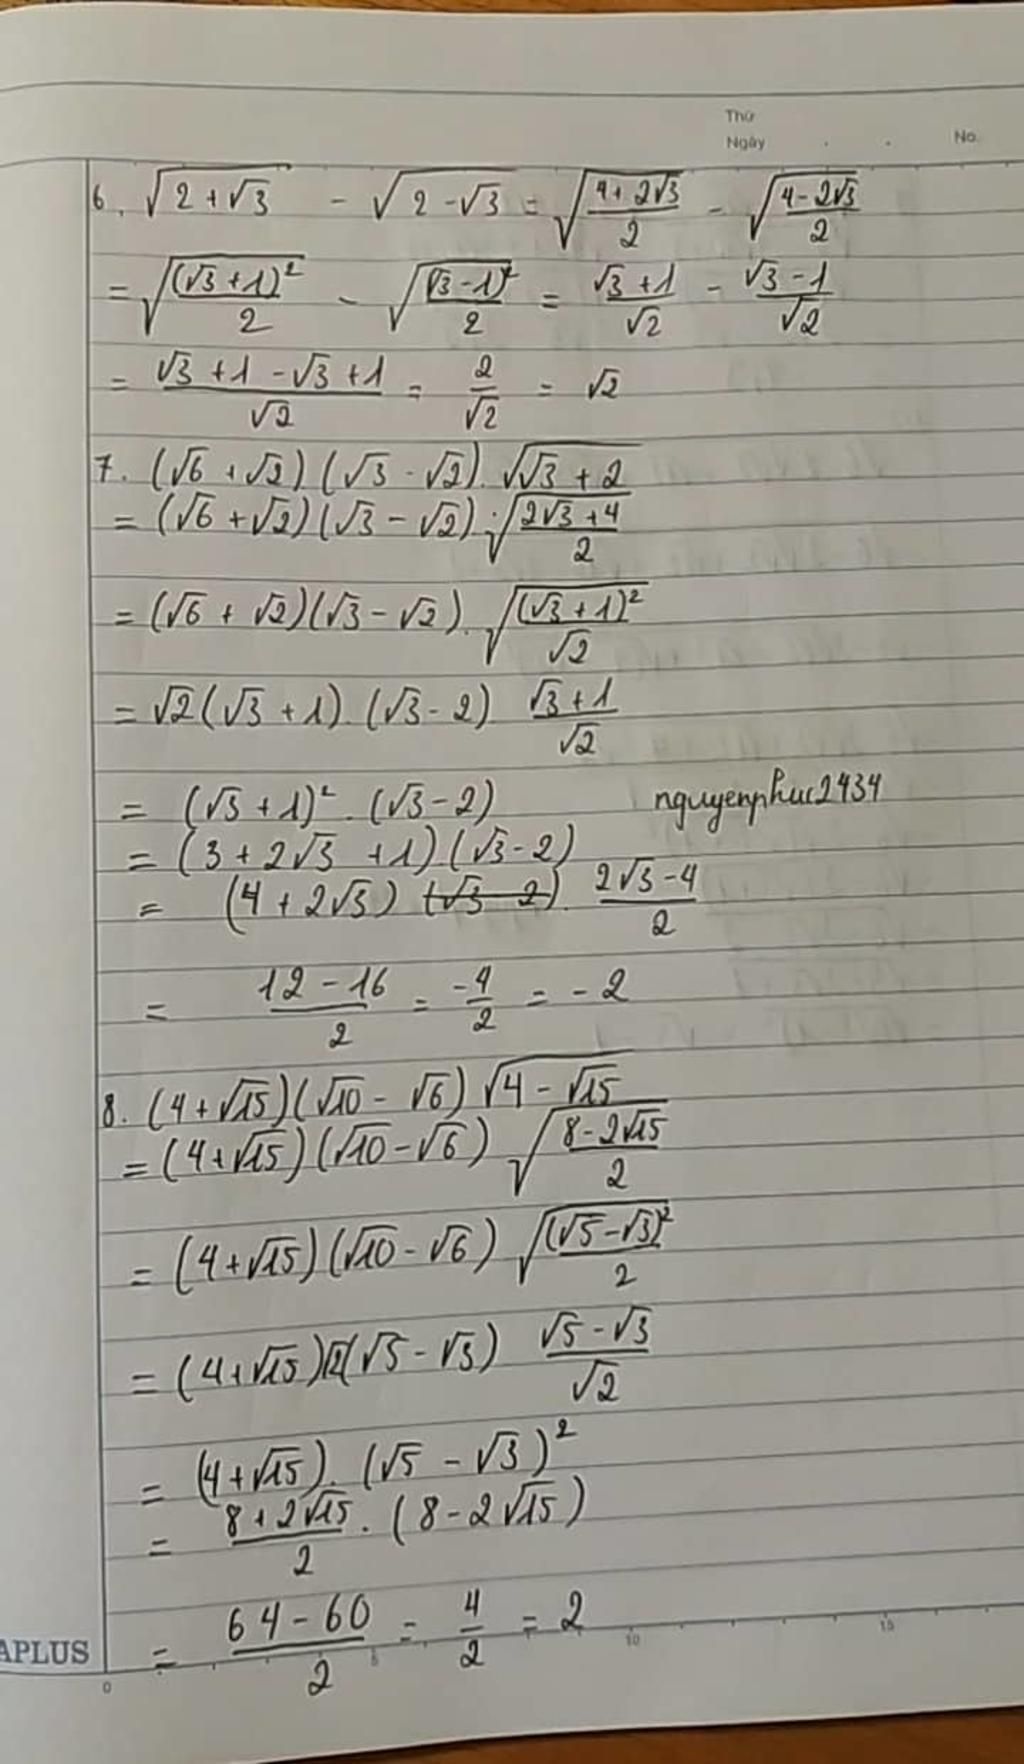 Thứ
Ngày . . No.
6. √(2+√3) - √(2-√3) = √((4+2√3)/2) - √((4-2√3)/2)
= √((√3+1)²/2) - √((√3-1)²/2) = (√3+1)/√2 - (√3-1)/√2
= (√3+1-√3+1)/√2 = 2/√2 = √2
7. (√6+√2)(√3-√2).√(√3+2)
= (√6+√2)(√3-√2).√((2√3+4)/2)
= (√6+√2)(√3-√2).√((√3+1)²/√2)
= √2(√3+1).(√3-2) (√3+1)/√2
= (√3+1)².(√3-2) nguyenphuc2434
= (3+2√3+1)(√3-2)
= (4+2√3) (√3-2). (2√3-4)/2
= (12-16)/2 = -4/2 = -2
8. (4+√15)(√10-√6)√(4-√15)
= (4+√15)(√10-√6) √((8-2√15)/2)
= (4+√15)(√10-√6) √((√5-√3)²/2)
= (4+√15)√2(√5-√3) (√5-√3)/√2
= (4+√15).(√5-√3)²
= (8+2√15)/2.(8-2√15)
= (64-60)/2 = 4/2 = 2
APLUS
0 5 10 15